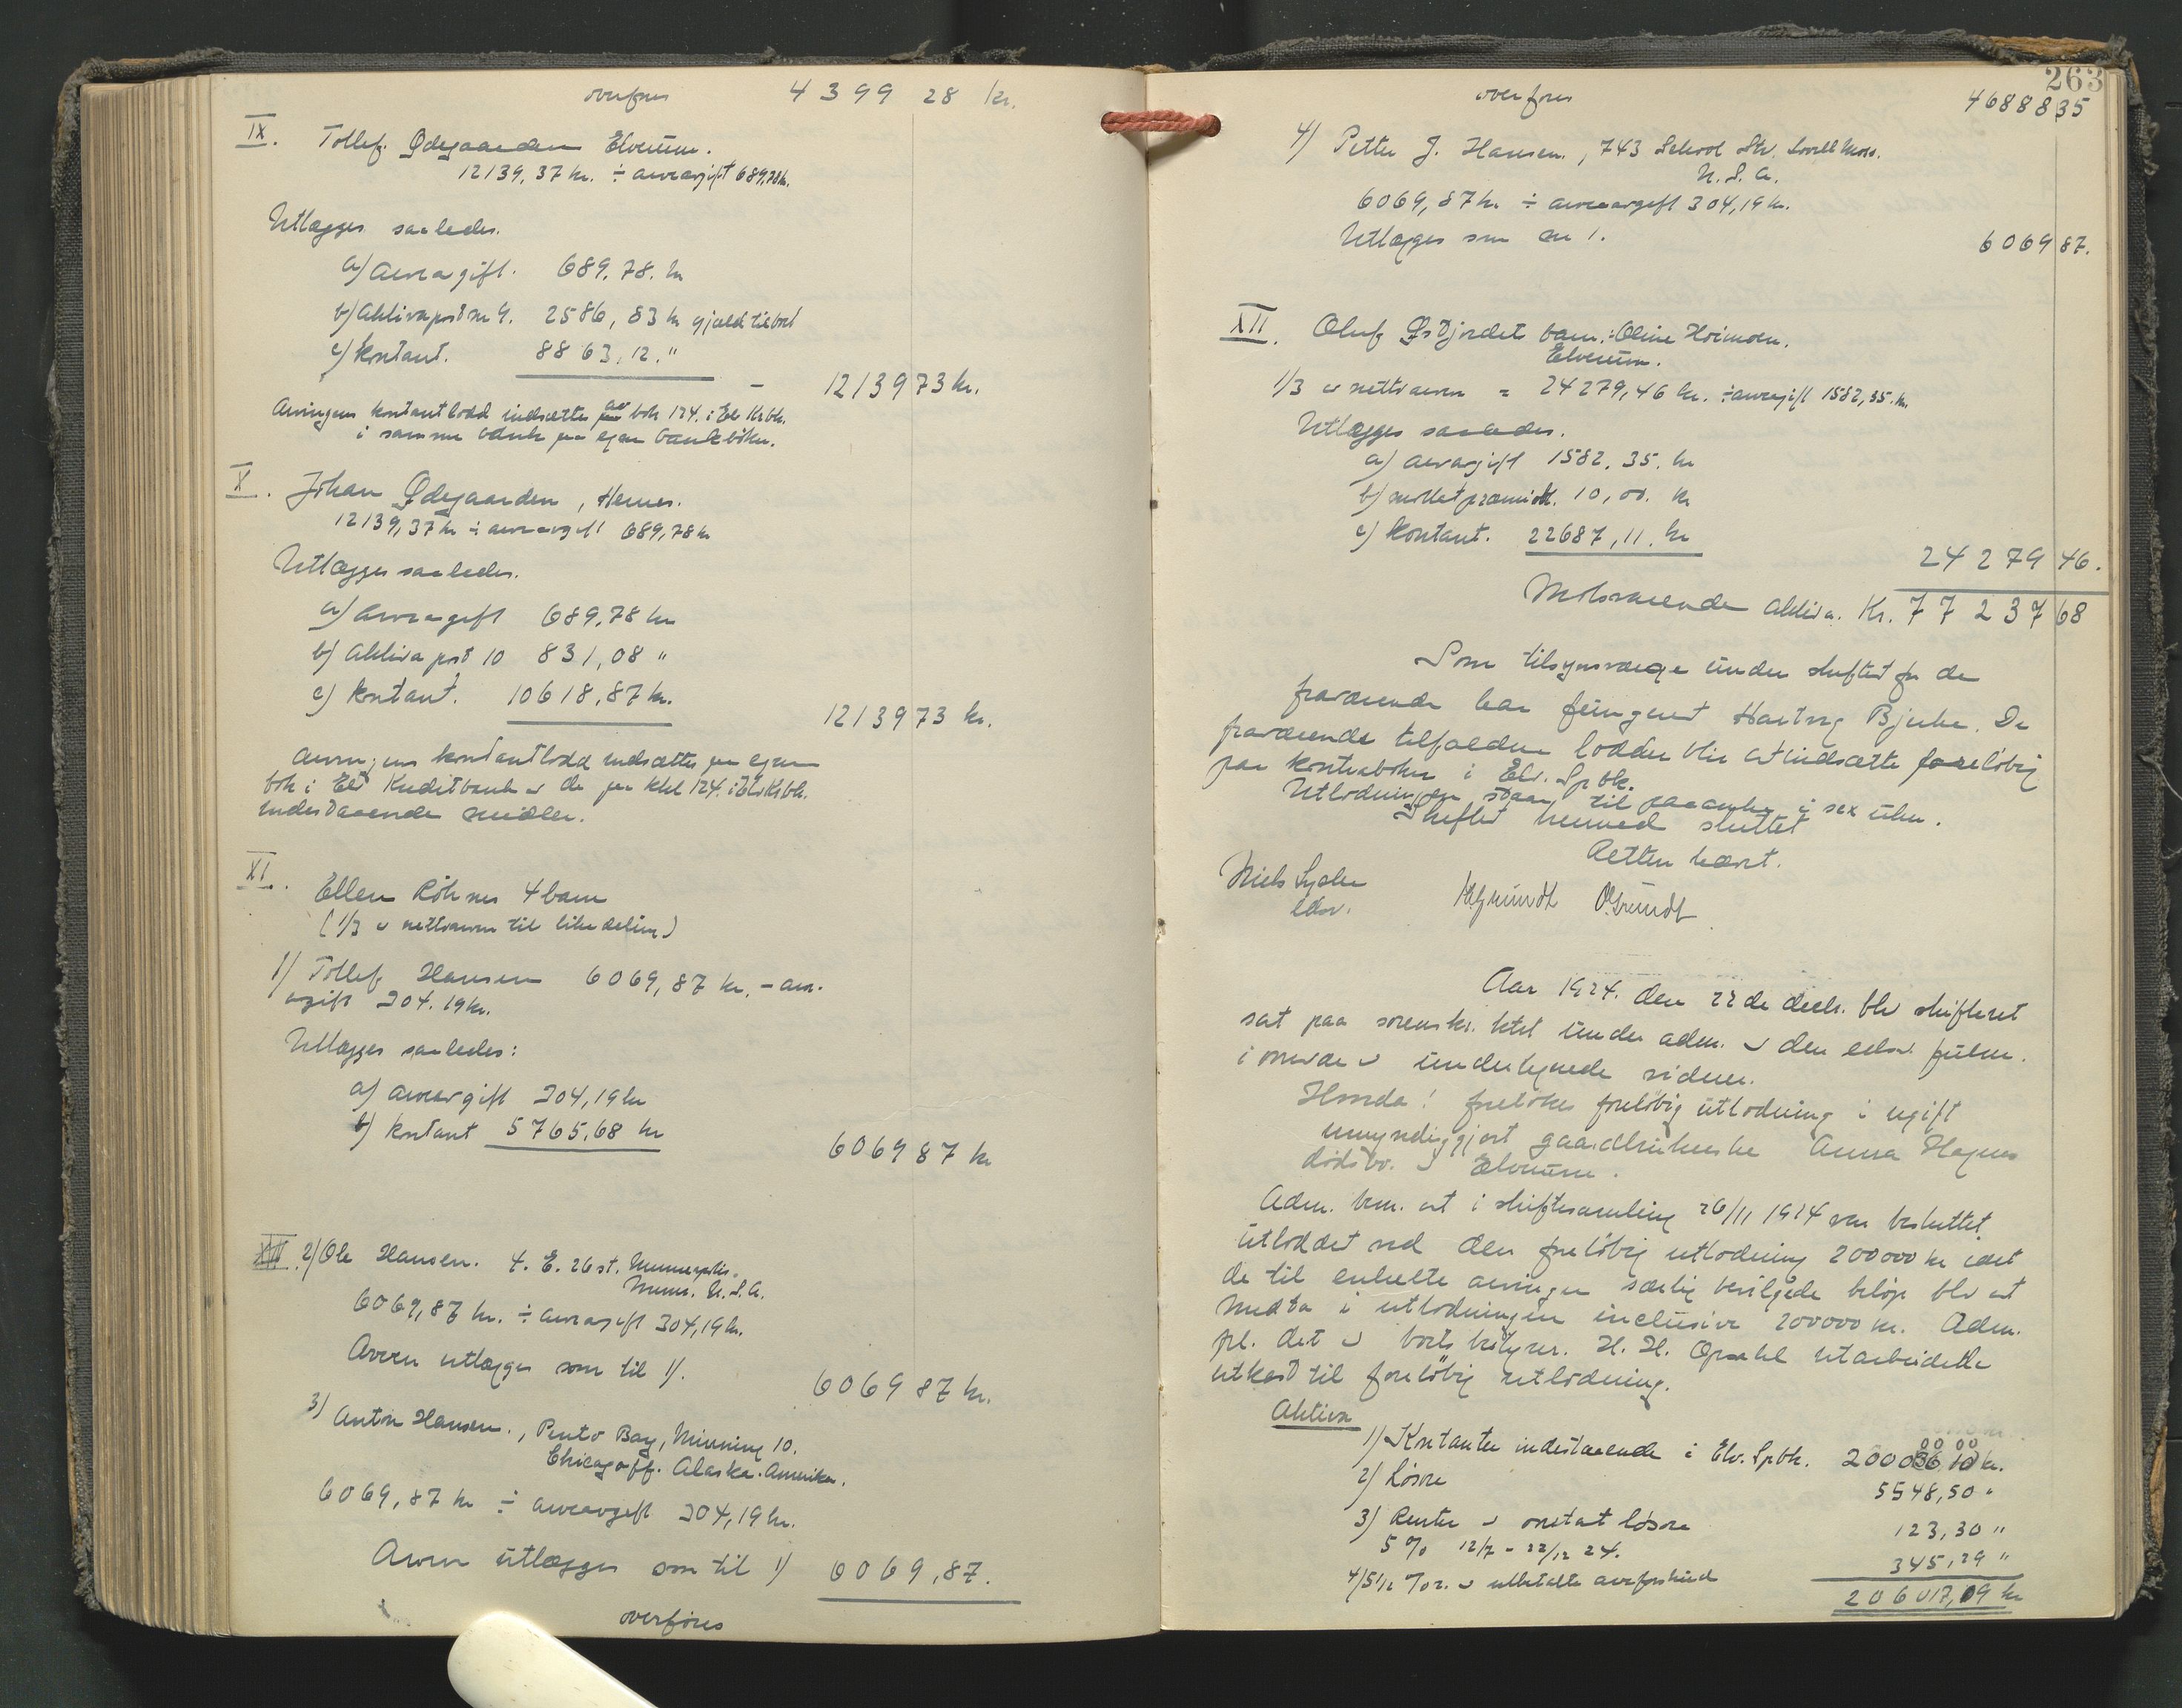 overføres 4399 28 kr.
IX. Tollef Ødegaarden Elverum.
12139,37 kr. ÷ arveavgift 689,78 kr.
Utlægges saaledes.
a) arveavgift. 689.78. kr
b) Aktivapost nr 9. 2586,83 kr gjæld til boet
c) kontant. 8863,12. "
- 12139 73 kr.
Arvingens kontantlodd indsættes av bok 124. i Elv Krbk.
i samme bank paa egen bankboken.
X. Johan Ødegaarden, Hernes.
12139,37 kr ÷ arveavgift 689,78 kr
Utlægges saaledes.
a) Arveavgift 689,78 kr
b) Aktiva post 10 831,08 "
c) kontant. 10618,87 kr.
12139 73 kr.
Arvingens kontantlodd indsættes paa egen
bok i Elv Kreditbank av de paa 124. i Elv Krbk.
indestaaende midler.
XI. Ellen Röknes 4 barn
(1/3 av nettoarven til like deling)
1) Tollef Hansen 6069,87 kr. - arve-
avgift 304.19 kr.
Utlægges saaledes:
a) arveavgift 304,19 kr
b) kontant 5765,68 kr
6069 87 kr
XII. 2) Ole Hansen. 4. E. 26 st. Minneapolis.
Minn. U.S.A.
6069,87 kr. ÷ arveavgift 304,19 kr.
Arven utlægges som til 1).
6069 87 kr.
3) Anton Hansen., Pinto Bay, Minning 10.
Chicagoff. Alaska. Amerika.
6069,87 kr ÷ arveavgift 304,19 kr.
Arven utlægges som til 1) 6069,87.
overføres
263
overføres 46888 35
4) Petter J. Hansen., 743 School Str. Lowell Mass.
U.S.A.
6069,87 kr ÷ arveavgift 304,19 kr.
Utlægges som nr 1.
6069 87.
XII. Oluf Østjordets barn: Oline Hoimoen.
Elverum.
1/3 av nettoarven = 24279,46 kr. ÷ arveavgift 1582,35. kr.
Utlægges saaledes.
a) arveavgift 1582.35. kr
b) mottat præmieobl. 10,00. kr
c) kontant. 22687,11. kr
24279 46.
Motsvarende aktiva. Kr. 77237 68
Som tilsynsværge under skiftet for de
fraværende har fungeret Hartvig Bjerke. De
fraværende tilfaldne lodder blir at indsætte foreløbig
paa kontrabøker i Elv. Spbk.
Utlodningen staar til paaanke i sex uker.
Skiftet hermed sluttet
Retten hævet.
Niels Lyche
edsv. HGrundt OGrundt
Aar 1924. den 22de decbr. blev skifteret
sat paa sorenskr. ktet under adm. av den edsv. fuldm.
i nærvær av undertegnede vidner.
Hvorda! foretokes foreløbig utlodning i ugift
umyndiggjort gaardbrukerske Anna Hagens
dødsbo. av Elverum.
Adm. bem. at i skiftesamling 26/11 1924 var besluttet
utloddet ved den foreløbig utlodning 200000 kr idet
de til enkelte arvinger særlig bevilgede beløp blev at
medta i utlodningen inclusive 200000 kr. Adm.
fr. det av boets bestyrer. H. H. Opsahl utarbeidede
utkast til foreløbig utlodning.
Aktiva
1) Kontanter indestaaende i Elv. Spbk. 200000 00 kr.
2) Løsøre 5548,50 "
3) Renter av mottat løsøre
5 % 12/7 - 22/12 24. 123,30 "
4) 5 1/2 % r. av utbetalte arveforskud 345,29 "
206017,09 kr